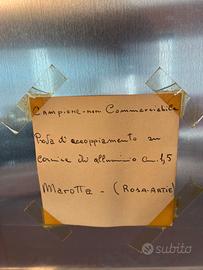 Campione non Commerciabile
Prova d'accoppiamento su
cornice di alluminio cm. 1,5
Marotta - (Rosa-Artie)
subito